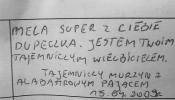 MEGA SUPER Z CIEBIE
DUPECZKA. JESTEM TWOIM
TAJEMNICZYM WIELBICIELEM.
TAJEMNICZY MURZYN Z
ALABASTROWYM PAJACEM
15.04.2009r.